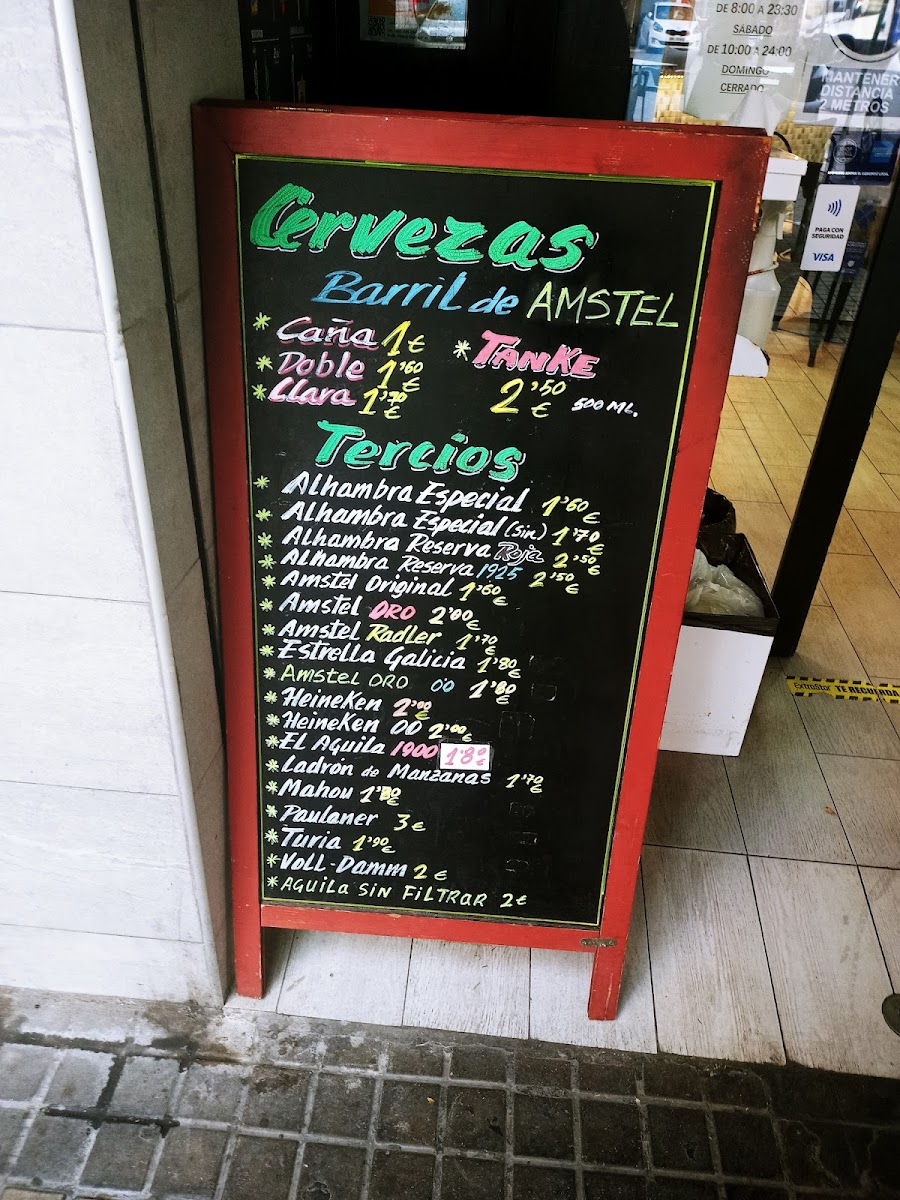 DE 8:00 A 23:30
SÁBADO
DE 10:00 A 24:00
DOMINGO
CERRADO
MANTENER
DISTANCIA
2 METROS
PAGA CON
SEGURIDAD
VISA
Cervezas
Barril de AMSTEL
* Caña 1€
* Doble 1'60€
* Clara 1'70€
* TANKE
2'50€ 500 ML.
Tercios
* Alhambra Especial 1'60€
* Alhambra Especial (Sin) 1'70€
* Alhambra Reserva Roja 2'50€
* Alhambra Reserva 1925 2'50€
* Amstel Original 1'60€
* Amstel ORO 2'00€
* Amstel Radler 1'70€
* Estrella Galicia 1'80€
* Amstel ORO 00 1'80€
* Heineken 2'00€
* Heineken 00 2'00€
* El Aguila 1900 1'80€
* Ladrón de Manzanas 1'70€
* Mahou 1'80€
* Paulaner 3€
* Turia 1'90€
* Voll-Damm 2€
* AGUILA SIN FILTRAR 2€
ExtraStar TE RECUERDA